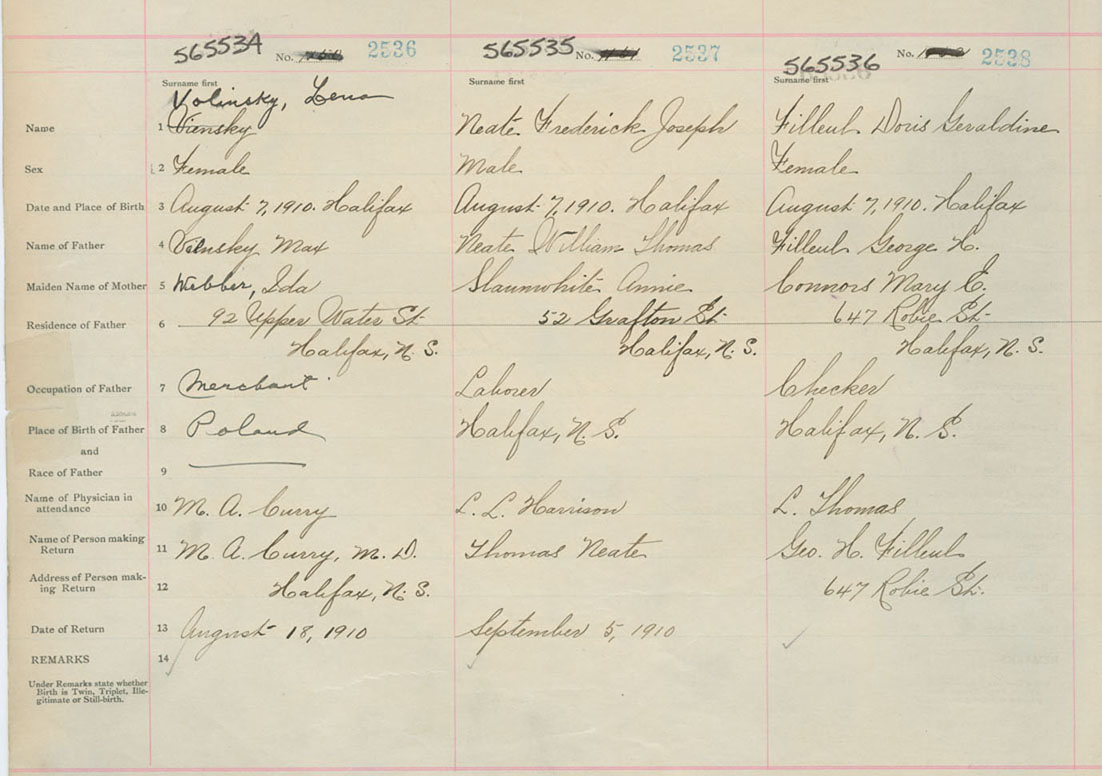 565534 No. 2536 565535 No. 2537 565536 No. 2538
Surname first Surname first Surname first
Volinsky, Lena
Name 1 Viensky Neate Frederick Joseph Filleul Doris Geraldine
Sex 2 Female Male Female
Date and Place of Birth 3 August 7, 1910. Halifax August 7, 1910. Halifax August 7, 1910. Halifax
Name of Father 4 Viensky Max Neate William Thomas Filleul George H.
Maiden Name of Mother 5 Webber, Ida Slaunwhite Annie Connors Mary E.
Residence of Father 6 92 Upper Water St. 52 Grafton St. 647 Robie St.
Halifax, N. S. Halifax, N. S. Halifax, N. S.
Occupation of Father 7 Merchant Laborer Checker
Place of Birth of Father 8 Poland Halifax, N. S. Halifax, N. S.
and
Race of Father 9
Name of Physician in
attendance 10 M. A. Curry L. L. Harrison L. Thomas
Name of Person making
Return 11 M. A. Curry, M. D. Thomas Neate Geo. H. Filleul
Address of Person mak-
ing Return 12 Halifax, N. S. 647 Robie St.
Date of Return 13 August 18, 1910 September 5, 1910
REMARKS 14
Under Remarks state whether
Birth is Twin, Triplet, Ille-
gitimate or Still-birth.